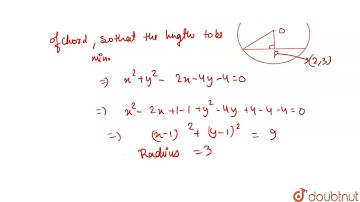 of chord, so that the lengths to be
min.
O
(2,3)
⇒ x² + y² - 2x - 4y - 4 = 0
⇒ x² - 2x + 1 - 1 + y² - 4y + 4 - 4 - 4 = 0
⇒ (x-1)² + (y-1)² = 9
Radius = 3
doubtnut